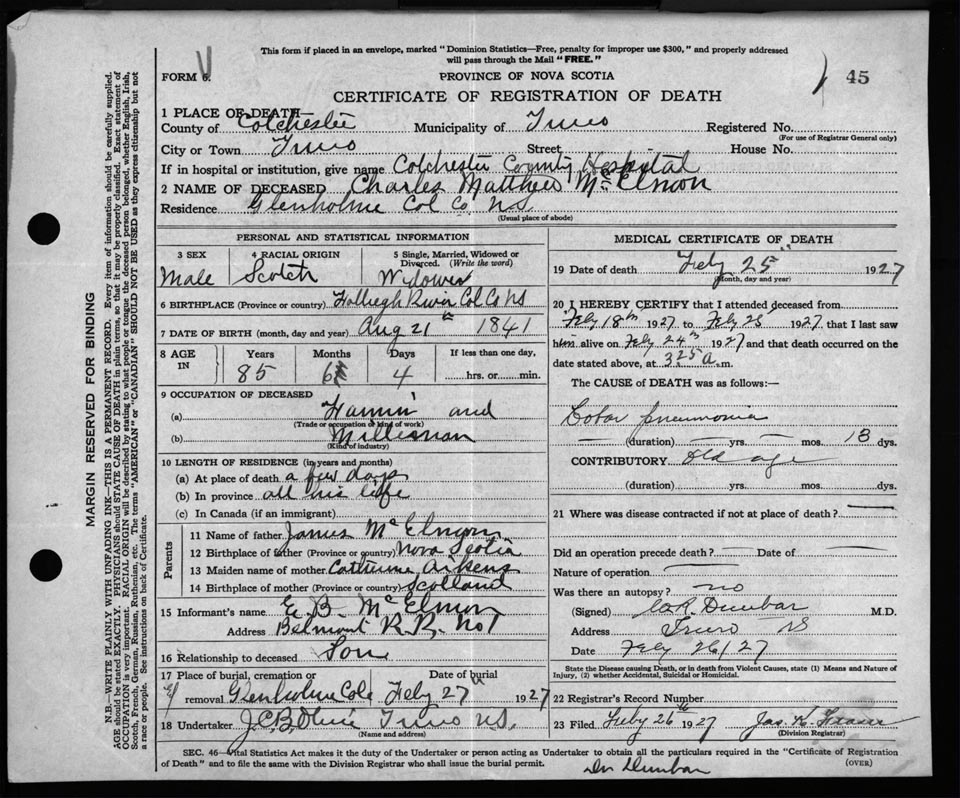 This form if placed in an envelope, marked "Dominion Statistics—Free, penalty for improper use $300," and properly addressed
will pass through the Mail "FREE."
FORM 6.
PROVINCE OF NOVA SCOTIA
45
CERTIFICATE OF REGISTRATION OF DEATH
1 PLACE OF DEATH—
County of Colchester Municipality of Truro Registered No.
(For use of Registrar General only)
City or Town Truro Street House No.
If in hospital or institution, give name Colchester County Hospital
2 NAME OF DECEASED Charles Matthew McElmon
Residence Glenholme Col Co NS
(Usual place of abode)
PERSONAL AND STATISTICAL INFORMATION
3 SEX 4 RACIAL ORIGIN 5 Single, Married, Widowed or
Divorced. (Write the word)
Male Scotch Widower
6 BIRTHPLACE (Province or country) River Col Co NS
7 DATE OF BIRTH (month, day and year) Aug 21st 1841
8 AGE Years Months Days If less than one day,
IN 85 6 4 hrs. or min.
9 OCCUPATION OF DECEASED
(a) and
(Trade or occupation or kind of work)
(b) Millman
(Kind of industry)
10 LENGTH OF RESIDENCE (in years and months)
(a) At place of death a few days
(b) In province all his life
(c) In Canada (if an immigrant)
Parents
11 Name of father James McElmon
12 Birthplace of father (Province or country) Nova Scotia
13 Maiden name of mother Catherine Aikens
14 Birthplace of mother (Province or country) Scotland
15 Informant's name E B McElmon
Address Belmont R.R. No 1
16 Relationship to deceased Son
17 Place of burial, cremation or Date of burial
removal Glenholme Col Feby 27 1927
18 Undertaker J.C.B. Truro NS.
(Name and address)
MEDICAL CERTIFICATE OF DEATH
19 Date of death Feby 25th 1927
(Month, day and year)
20 I HEREBY CERTIFY that I attended deceased from
Feby 18th 1927 to Feby 25th 1927 that I last saw
him alive on Feby 24th 1927 and that death occurred on the
date stated above, at 3.25 a.m.
The CAUSE of DEATH was as follows:—
Lobar pneumonia
(duration) yrs. mos. 13 dys.
CONTRIBUTORY old age
(duration) yrs. mos. dys.
21 Where was disease contracted if not at place of death?
Did an operation precede death? Date of
Nature of operation
Was there an autopsy? no
(Signed) Dunbar M.D.
Address Truro NS
Date Feby 26/27
State the Disease causing Death, or in death from Violent Causes, state (1) Means and Nature of
Injury, (2) whether Accidental, Suicidal or Homicidal.
22 Registrar's Record Number
23 Filed Feby 26th 1927 Jas. K. Fraser
(Division Registrar)
SEC. 46—Vital Statistics Act makes it the duty of the Undertaker or person acting as Undertaker to obtain all the particulars required in the "Certificate of Registration
of Death" and to file the same with the Division Registrar who shall issue the burial permit.
(OVER)
Dr Dunbar
MARGIN RESERVED FOR BINDING
N.B.—WRITE PLAINLY WITH UNFADING INK—THIS IS A PERMANENT RECORD. Every item of information should be carefully supplied.
AGE should be stated EXACTLY. PHYSICIANS should STATE CAUSE OF DEATH in plain terms, so that it may be properly classified. Exact statement of
OCCUPATION is very important. RACIAL ORIGIN will be described by stating to what people or tongue the deceased person belonged, whether English, Irish,
Scotch, French, German, Russian, Ruthenian, etc. The terms "AMERICAN" or "CANADIAN" SHOULD NOT BE USED as they express citizenship but not
a race or people. See instructions on back of Certificate.